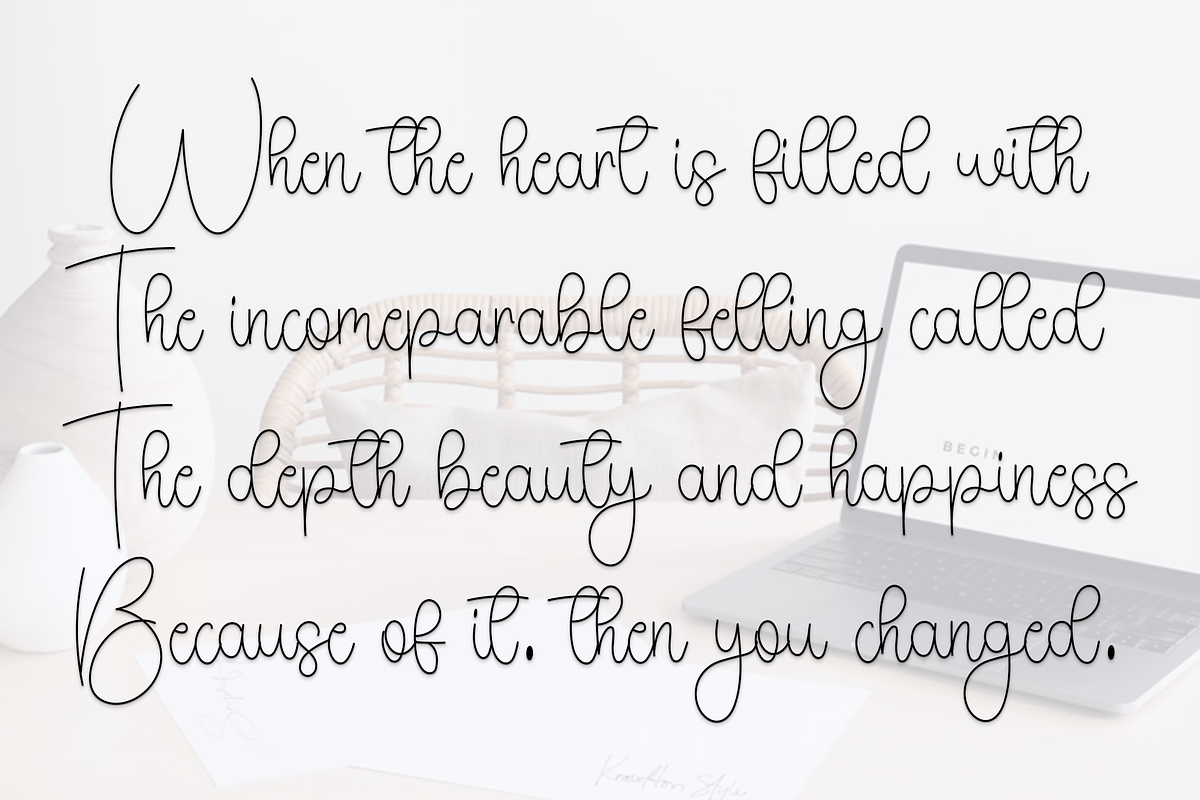 When the heart is filled with
The incomeparable felling called
The depth beauty and happiness
BEGIN
Because of it. then you changed.
Knowhton Style